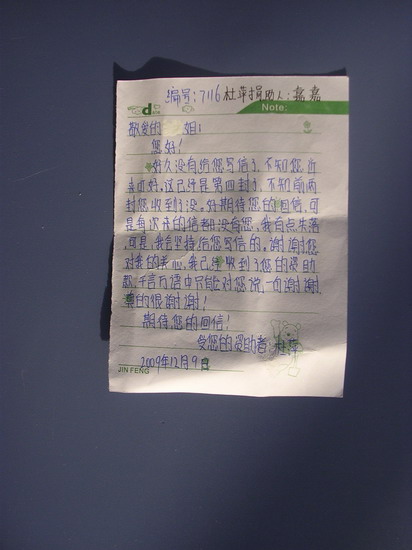 编号:7116 杜萍捐助人:嘉嘉
Note:
敬爱的 姐:
您好!
好久没有给您写信了,不知您近
来可好,这已经是第四封了,不知前两
封您收到了没。好期待您的回信,可
是每次来的信都没有您,我有点失落
可是,我会坚持给您写信的,谢谢您
对我的关心,我已经收到了您的资助
款,千言万语中只能对您说一句谢谢
真的很谢谢!
期待您的回信!
受您的资助者:杜萍
2009年12月9日
JIN FENG